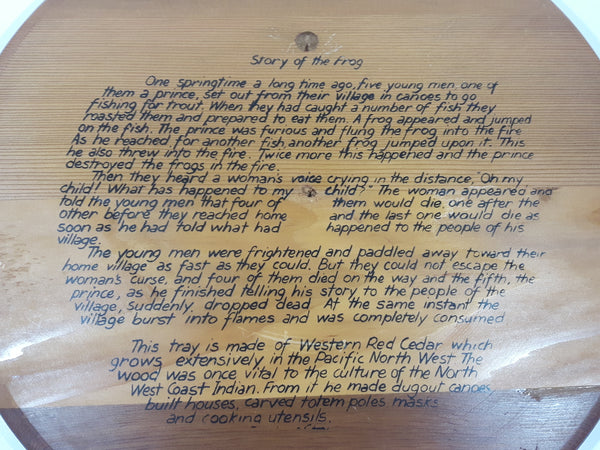 Story of the Frog
One springtime a long time ago, five young men, one of
them a prince, set out from their village in canoes to go
fishing for trout. When they had caught a number of fish they
roasted them and prepared to eat them. A frog appeared and jumped
on the fish. The prince was furious and flung the frog into the fire
As he reached for another fish, another frog jumped upon it. This
he also threw into the fire. Twice more this happened and the prince
destroyed the frogs in the fire.
Then they heard a woman's voice crying in the distance, "Oh my
child! What has happened to my child?" The woman appeared and
told the young men that four of them would die, one after the
other before they reached home and the last one would die as
soon as he had told what had happened to the people of his
village.
The young men were frightened and paddled away toward their
home village as fast as they could. But they could not escape the
woman's curse, and four of them died on the way and the fifth, the
prince, as he finished telling his story to the people of the
village, suddenly, dropped dead. At the same instant the
village burst into flames and was completely consumed
This tray is made of Western Red Cedar which
grows extensively in the Pacific North West The
wood was once vital to the culture of the North
West Coast Indian. From it he made dugout canoes,
built houses, carved totem poles masks
and cooking utensils.